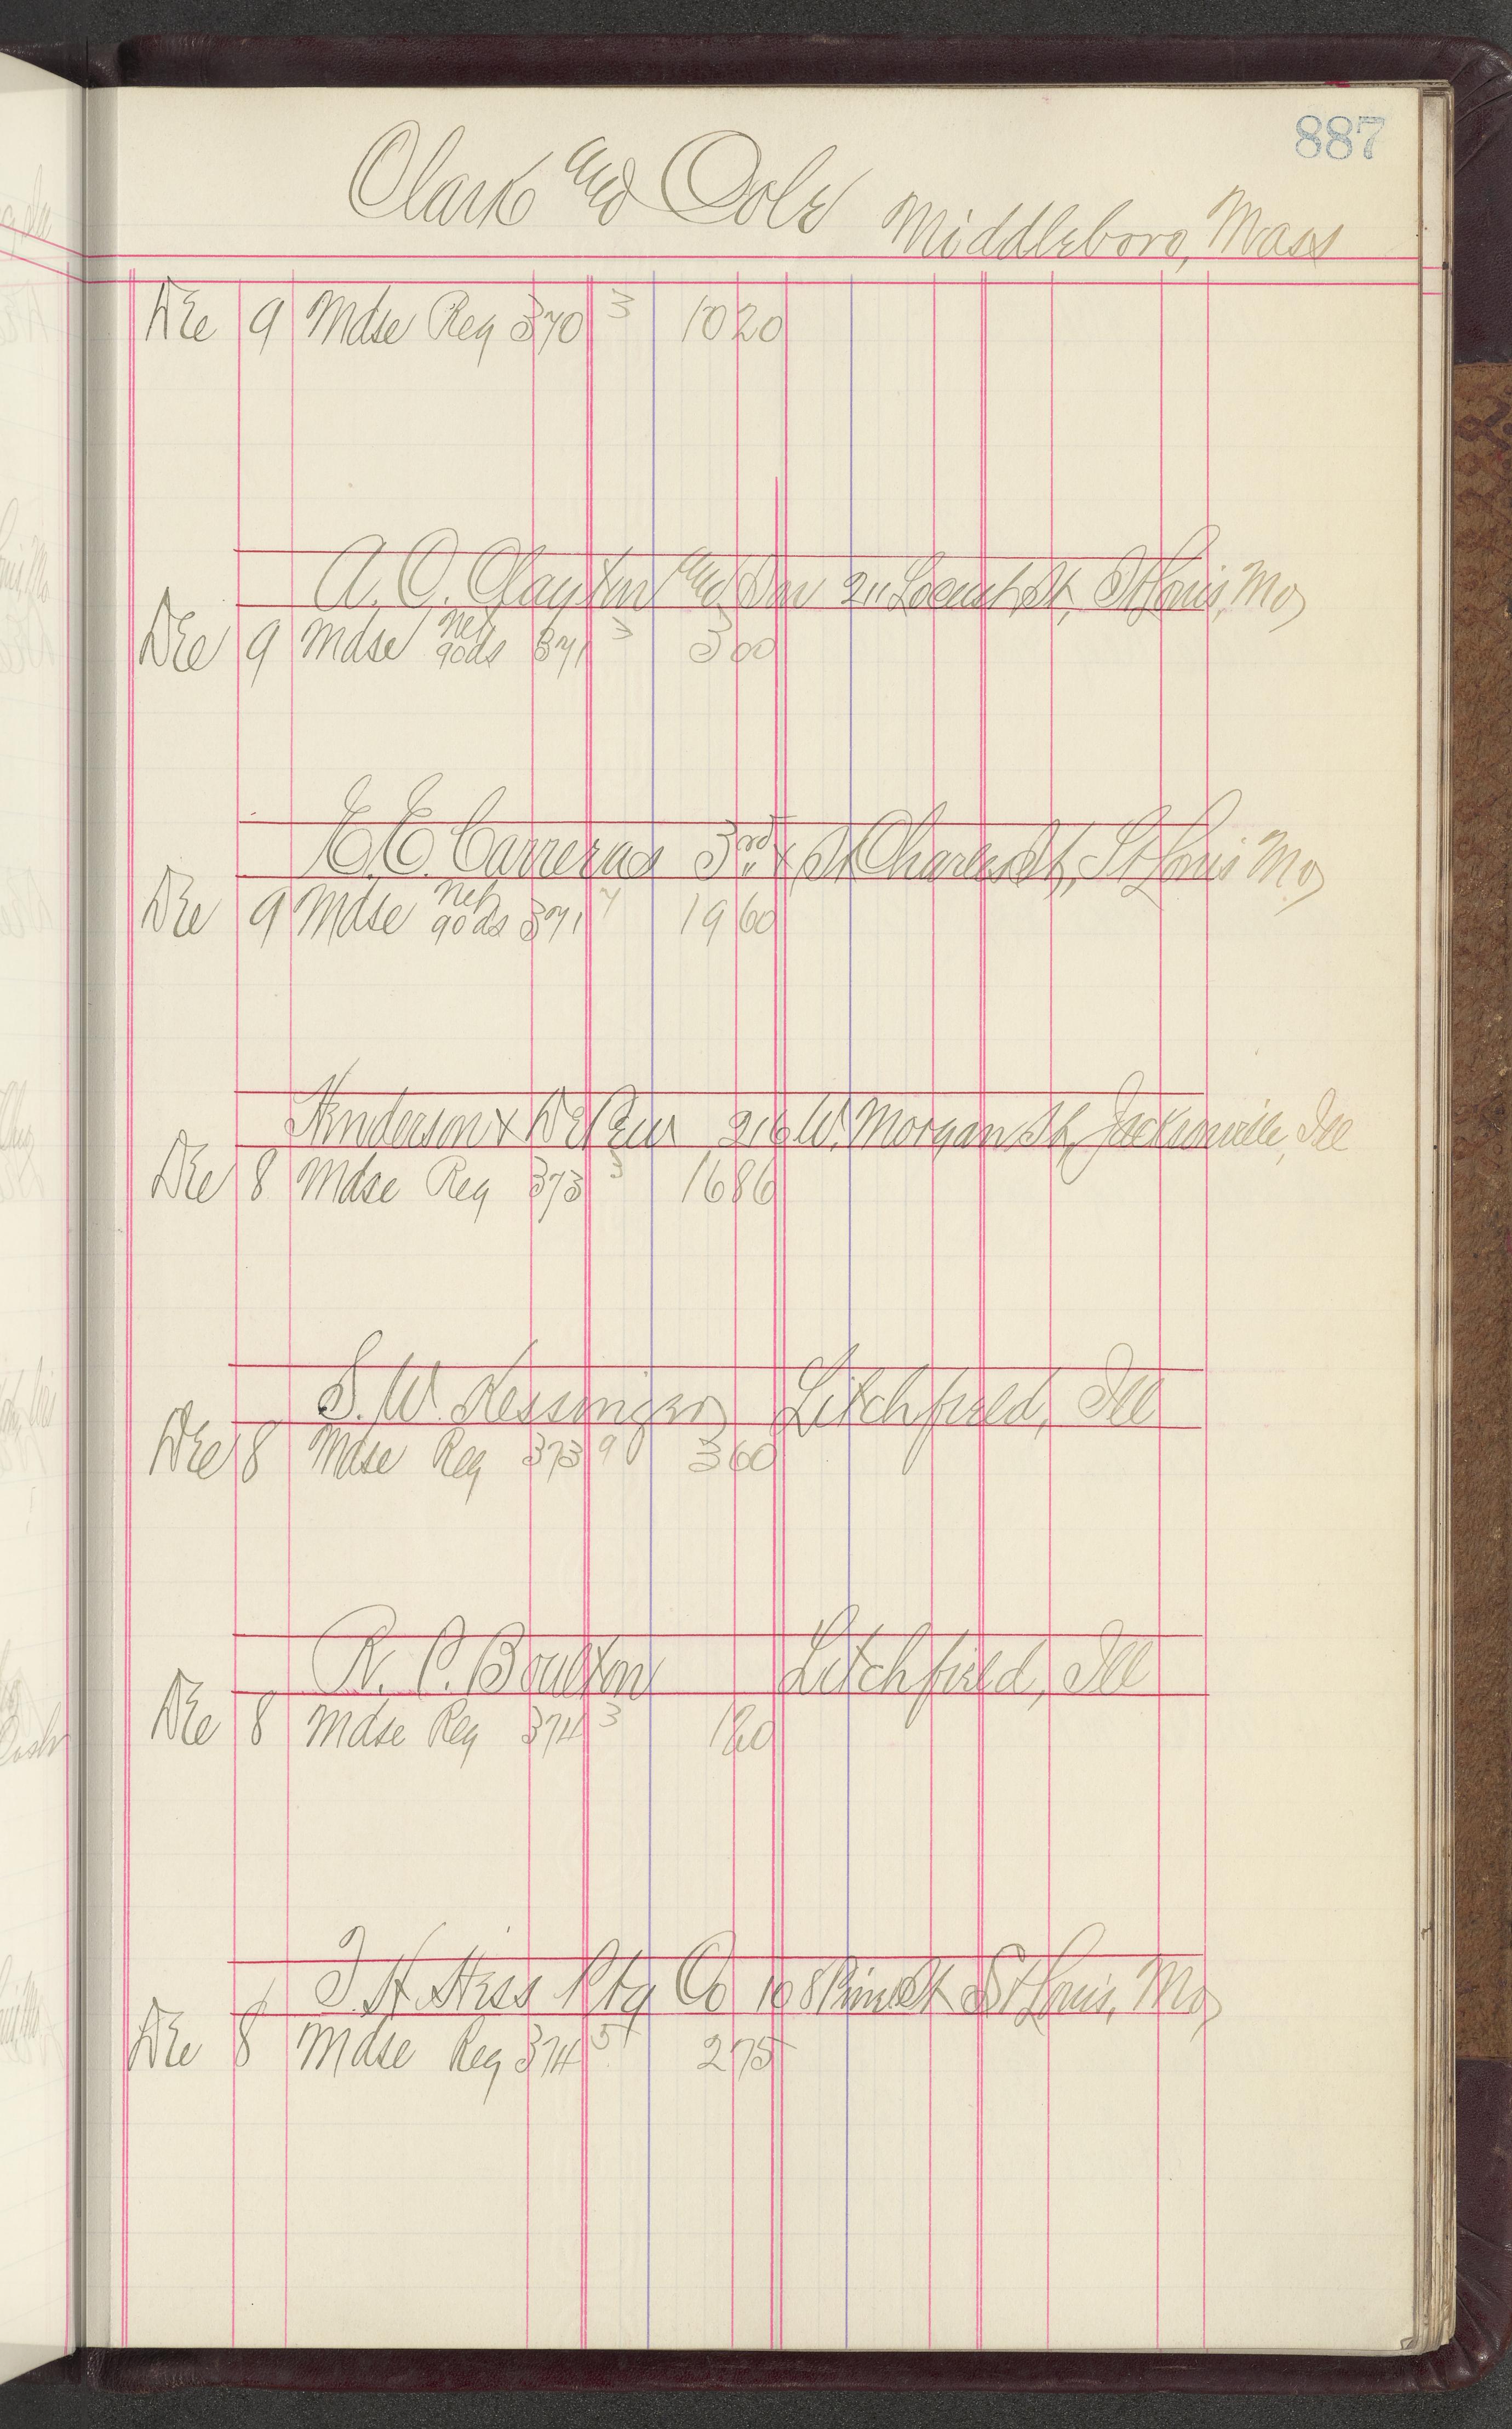 887
Clark and Cole Middleboro, Mass
Dec 9 Mdse Reg 370 3 10 20
A. C. Clayton and Son 211 Locust St, St Louis, Mo
Dec 9 Mdse net 90 ds 371 3 3 00
E. E. Carreras 3rd & St Charles St, St Louis Mo
Dec 9 Mdse net 90 ds 371 7 19 60
Henderson & DePew 216 W. Morgan St, Jacksonville, Ill
Dec 8 Mdse Reg 373 5 16 86
S. W. Kessinger Litchfield, Ill
Dec 8 Mdse Reg 373 90 3 60
R. P. Boulton Litchfield, Ill
Dec 8 Mdse Reg 374 3 1 20
T. H. Hess Ptg Co 108 Pine St St Louis, Mo
Dec 8 Mdse Reg 374 5 2 75